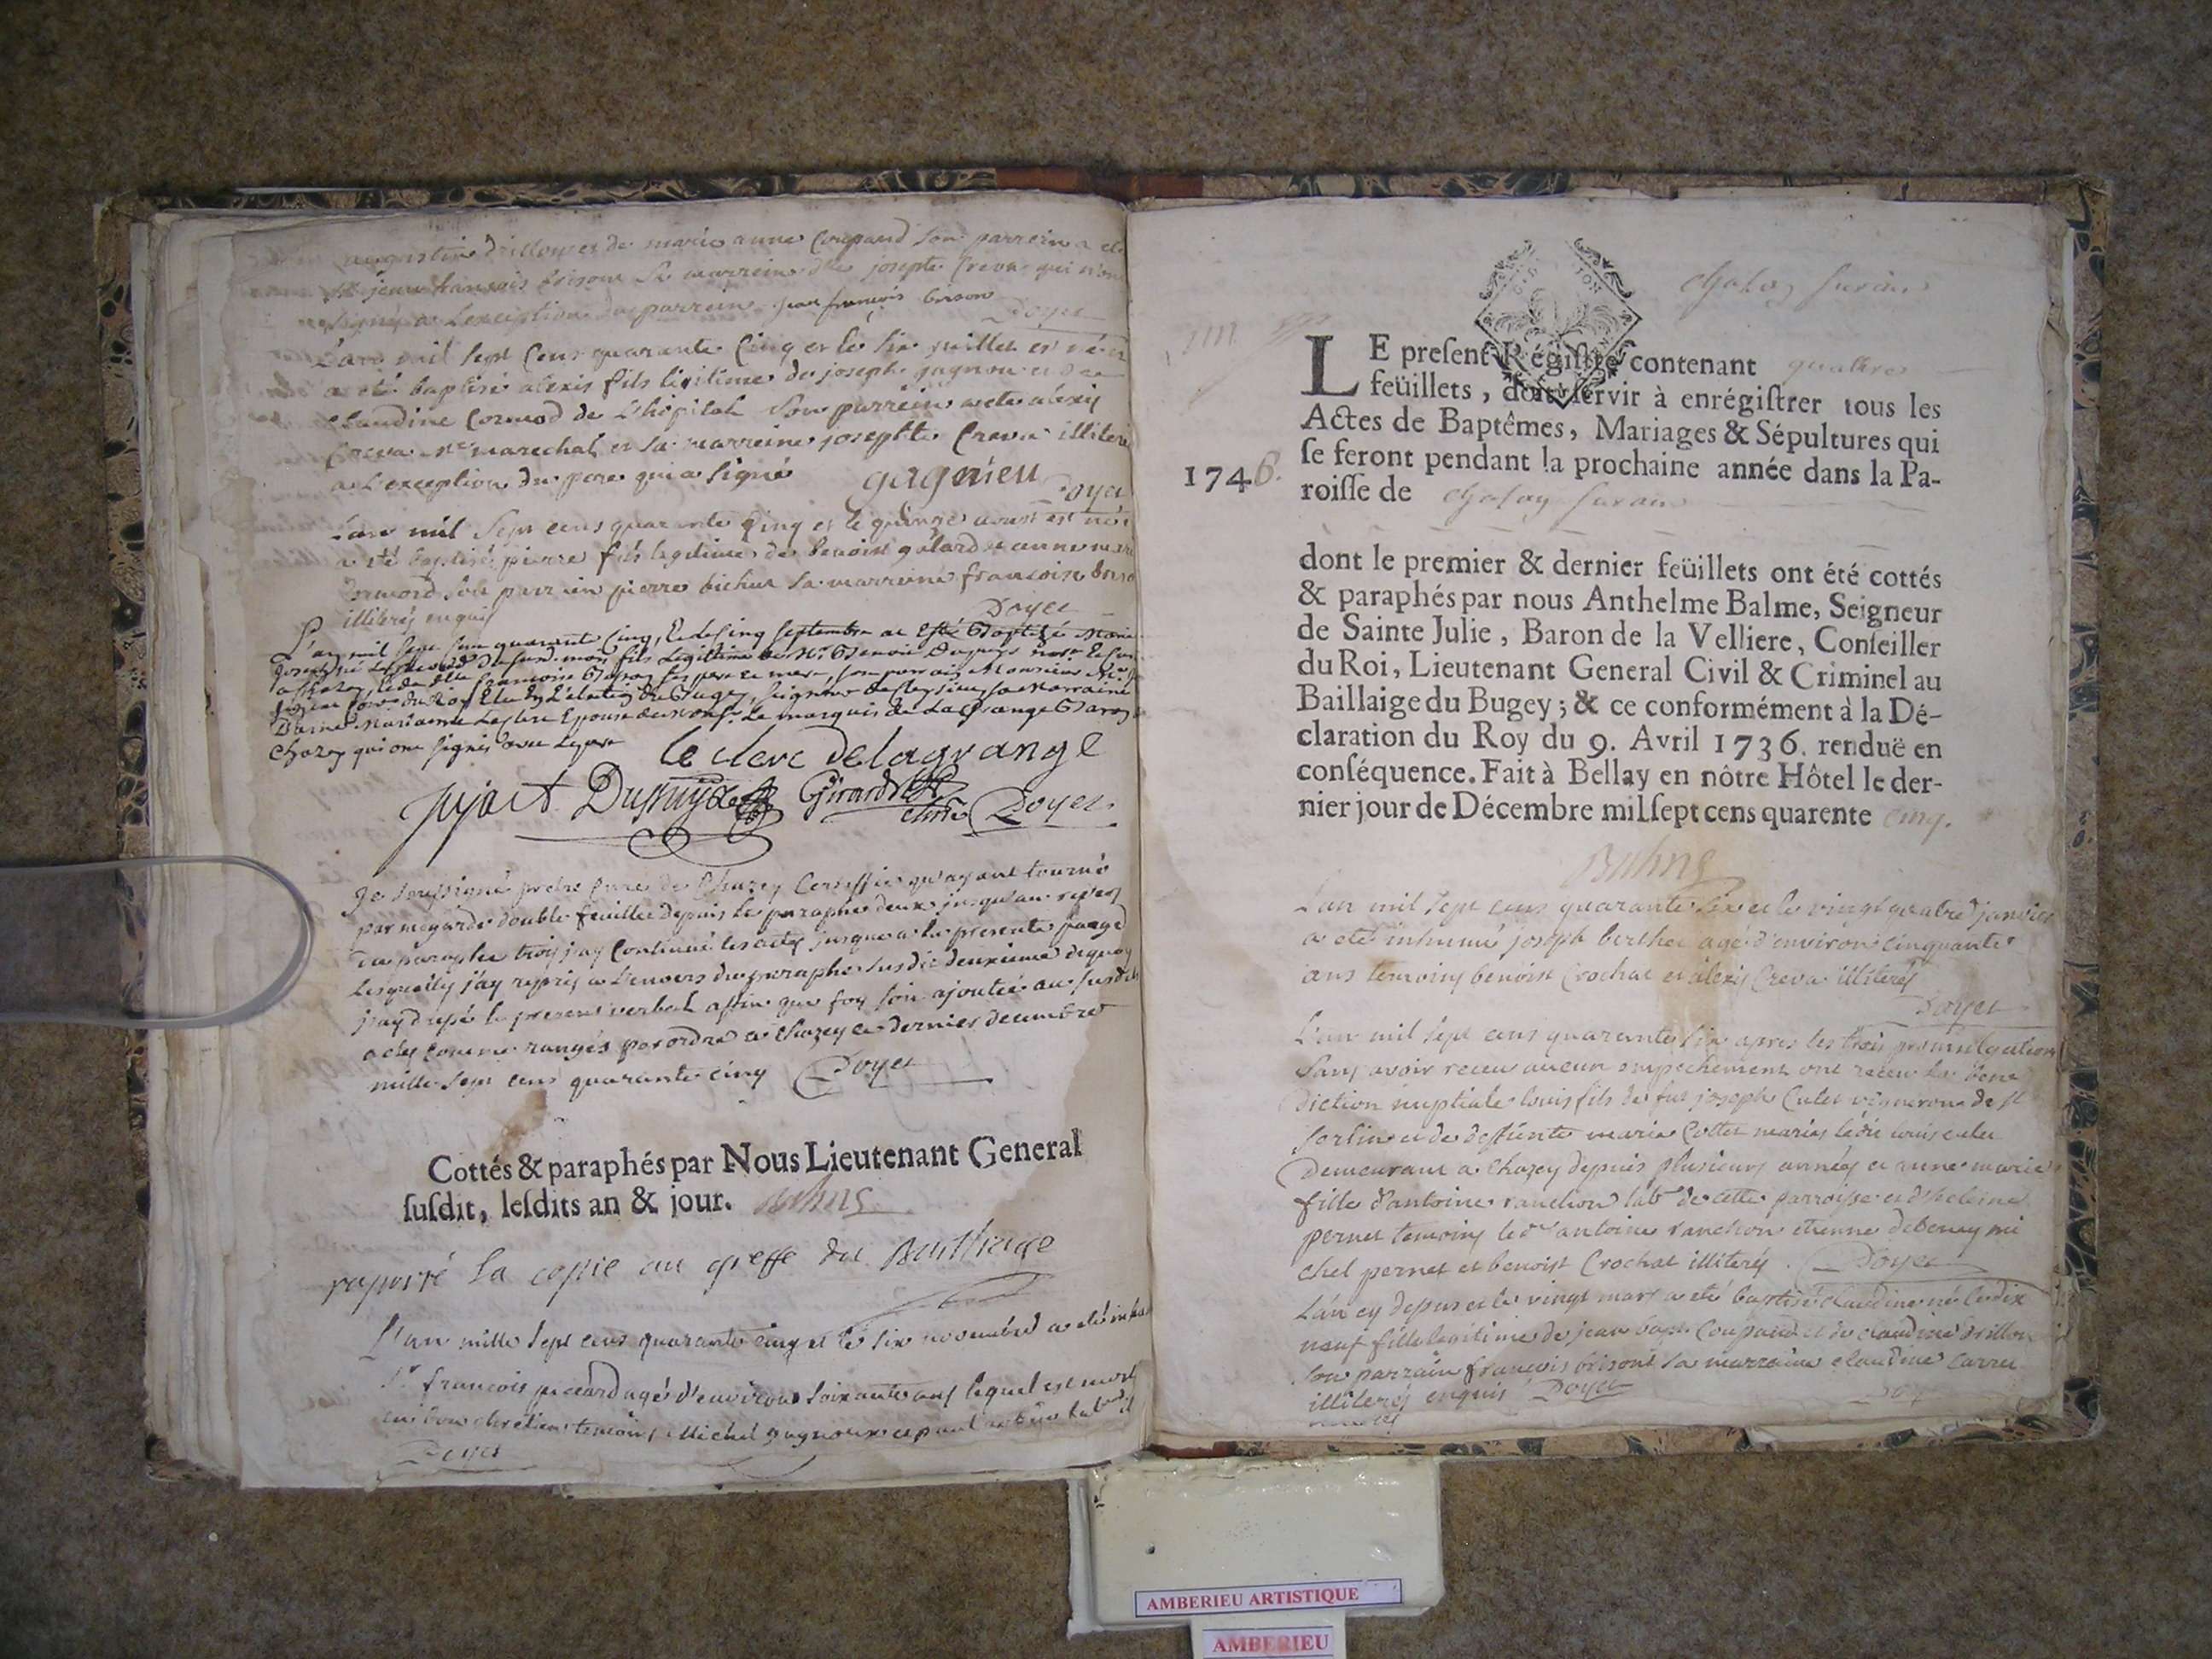 augustin drillon et de marie anne Coupand son parrein a eté
jean francois brison sa marreine dlle josepte Creva qui n'ont
signé a l'exception du parrein jean françois brison
Doyet
L'an mil sept Cens quarante Cinq et le six juillet est né et
a eté baptisé alexis fils légitime de joseph gagnieu et de
Claudine Cormod de L'hopital son parrein a eté aléxis
Creva me marechal et sa marreine josephte Creva illiterés
a L'exception du pere qui a signé gagnieu
Doyet
L'an mil sept cens quarante Cinq et le quinze aoust est né et
a eté baptisé pierre fils legitime de benoist galard et anne marie
Cormord son parrein pierre bichat sa marreine francoise
illiterés enquis Doyet
L'an mil sept cens quarante Cinq, et le Cinq Septembre a Esté Baptizé Marie
Joseph né fils Legitime de Mr Benoit Dupuys
francoise ses pere et mere, son parrain Monsieur
du Roy Elu En L'election du Bugey, Seigneur sa Marraine
Dame Marianne Leclerc Epouse de Monsr Le marquis de La Grange Baron
Chazey qui ont signés avec Le pere le clerc de lagrange
Jujat Dupuys Girard Doyet
Je soussigné pretre Curé de Chazey Certiffie qu'ayant tourné
par megarde double feuillet depuis le paraphe deux jusqu'au revers
du paraphe trois j'ay Continué les actes jusque a la presente page
lesquels j'ay repris a L'envers du paraphe susdit deuxieme dequoy
j'ay dressé le present verbal affin que foy soit ajoutée au susdits
actes comme rangés par ordre a Chazey ce dernier decembre
mille sept cens quarante cinq Doyet
Cottés & paraphés par Nous Lieutenant General
susdit, lesdits an & jour. Balme
raporté la copie au greffe du Bailliage
L'an mille sept cens quarante cinq et le six novembre a eté inhumé
Sr francois picard agé d'environ soixante ans lequel est mort
en bon chretien temoins Michel gagnoux et
Doyet
Chazey surain
LE present Régistre contenant quattre
feüillets, doit servir à enrégistrer tous les
Actes de Baptêmes, Mariages & Sépultures qui
se feront pendant la prochaine année dans la Pa-
1746.
roisse de Chazey surain
dont le premier & dernier feüillets ont été cottés
& paraphés par nous Anthelme Balme, Seigneur
de Sainte Julie, Baron de la Velliere, Conseiller
du Roi, Lieutenant General Civil & Criminel au
Baillaige du Bugey; & ce conformément à la Dé-
claration du Roy du 9. Avril 1736. renduë en
conséquence. Fait à Bellay en nôtre Hôtel le der-
nier jour de Décembre mil sept cens quarente cinq.
Balme
L'an mil sept cens quarante six et le vingt quatre janvier
a eté inhumé joseph berthet agé d'environ cinquante
ans temoins benoist Crochat et aléxis Creva illiterés
Doyet
L'an mil sept cens quarante six apres les trois promulgations
sans avoir receu aucun empechement ont receu la bene
diction nuptiale louis fils de fut joseph Culet vigneron de st
sorlin et de deffunte marie Cottet mariés ledit louis culet
Demeurant a Chazey depuis plusieurs années et anne marie
fille d'antoine ranchon labr de cette parroisse et d'heleine
pernet temoins led. antoine ranchon etienne debeney mi
chel pernet et benoist Crochat illiterés. Doyet
L'an cy dessus et le vingt mars a eté baptisé claudine né le dix
neuf fille legitime de jean bapt. Coupand et de claudine drillon
son parrain francois brison sa marraine claudine Carru
illiterés enquis Doyet
AMBERIEU ARTISTIQUE
AMBERIEU